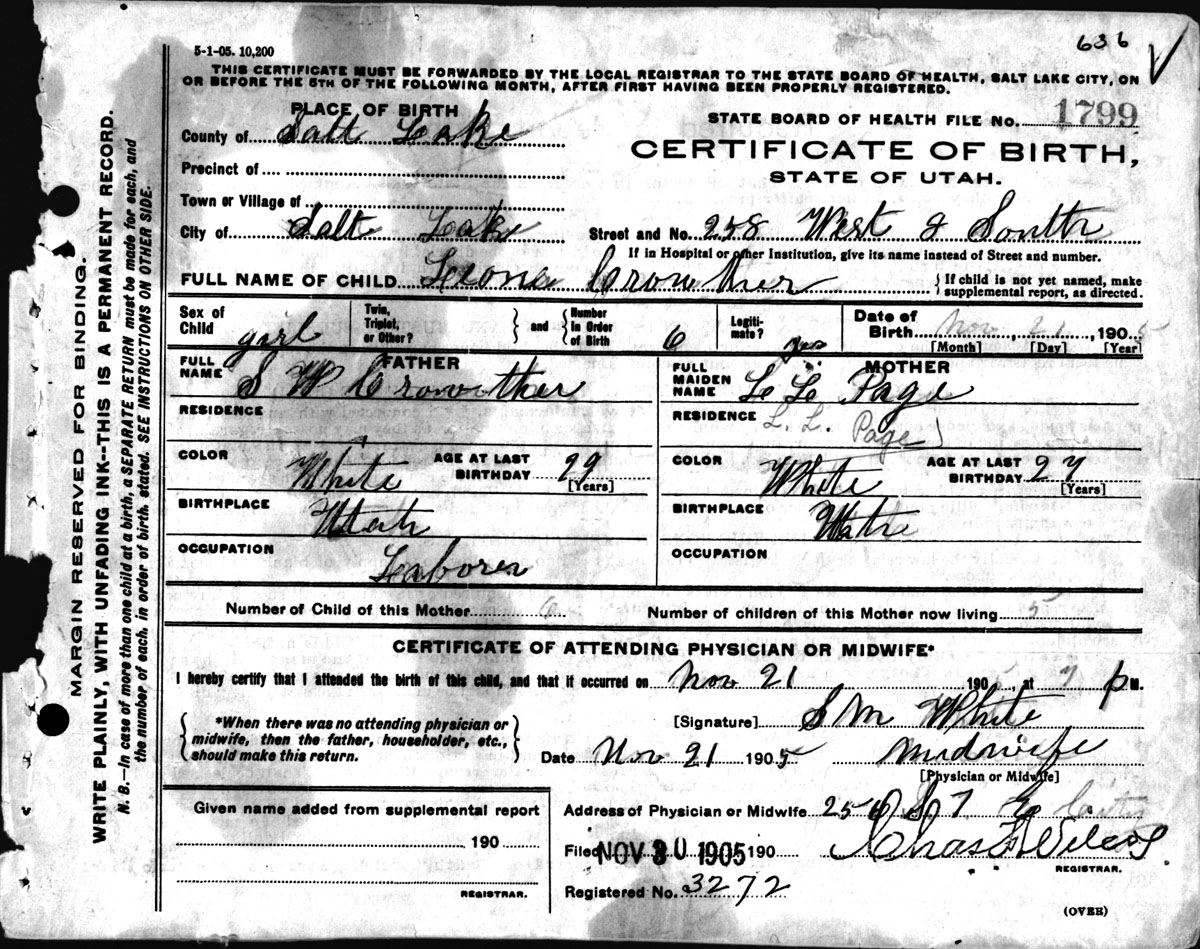 5-1-05. 10,200
636
THIS CERTIFICATE MUST BE FORWARDED BY THE LOCAL REGISTRAR TO THE STATE BOARD OF HEALTH, SALT LAKE CITY, ON
OR BEFORE THE 5TH OF THE FOLLOWING MONTH, AFTER FIRST HAVING BEEN PROPERLY REGISTERED.
PLACE OF BIRTH
County of Salt Lake
Precinct of
Town or Village of
City of Salt Lake
STATE BOARD OF HEALTH FILE NO. 1799
CERTIFICATE OF BIRTH,
STATE OF UTAH.
Street and No. 258 West 2 South
If in Hospital or other Institution, give its name instead of Street and number.
FULL NAME OF CHILD Leona Crowther
{ If child is not yet named, make
supplemental report, as directed.
Sex of Child girl
Twin, Triplet, or Other? } and { Number In Order of Birth 6
Legiti- mate? yes
Date of Birth Nov 21, 1905
[Month] [Day] [Year]
FATHER
FULL NAME S W Crowther
RESIDENCE
COLOR White AGE AT LAST BIRTHDAY 29
[Years]
BIRTHPLACE Utah
OCCUPATION Laborer
MOTHER
FULL MAIDEN NAME L L Page
RESIDENCE L. L. Page
COLOR White AGE AT LAST BIRTHDAY 27
[Years]
BIRTHPLACE
OCCUPATION
Number of Child of this Mother 6 Number of children of this Mother now living 5
CERTIFICATE OF ATTENDING PHYSICIAN OR MIDWIFE*
I hereby certify that I attended the birth of this child, and that it occurred on Nov 21 1905, at 7 P M.
{ *When there was no attending physician or
midwife, then the father, householder, etc.,
should make this return. }
[Signature] S M White
Date Nov 21 1905 Midwife
[Physician or Midwife]
Given name added from supplemental report
190
REGISTRAR.
Address of Physician or Midwife 256 S. 7 E City
Filed NOV 30 1905 190 Chas F Wilcox
REGISTRAR.
Registered No. 3272
(OVER)
MARGIN RESERVED FOR BINDING.
WRITE PLAINLY, WITH UNFADING INK--THIS IS A PERMANENT RECORD.
N. B.—In case of more than one child at a birth, a SEPARATE RETURN must be made for each, and
the number of each, in order of birth, stated. SEE INSTRUCTIONS ON OTHER SIDE.